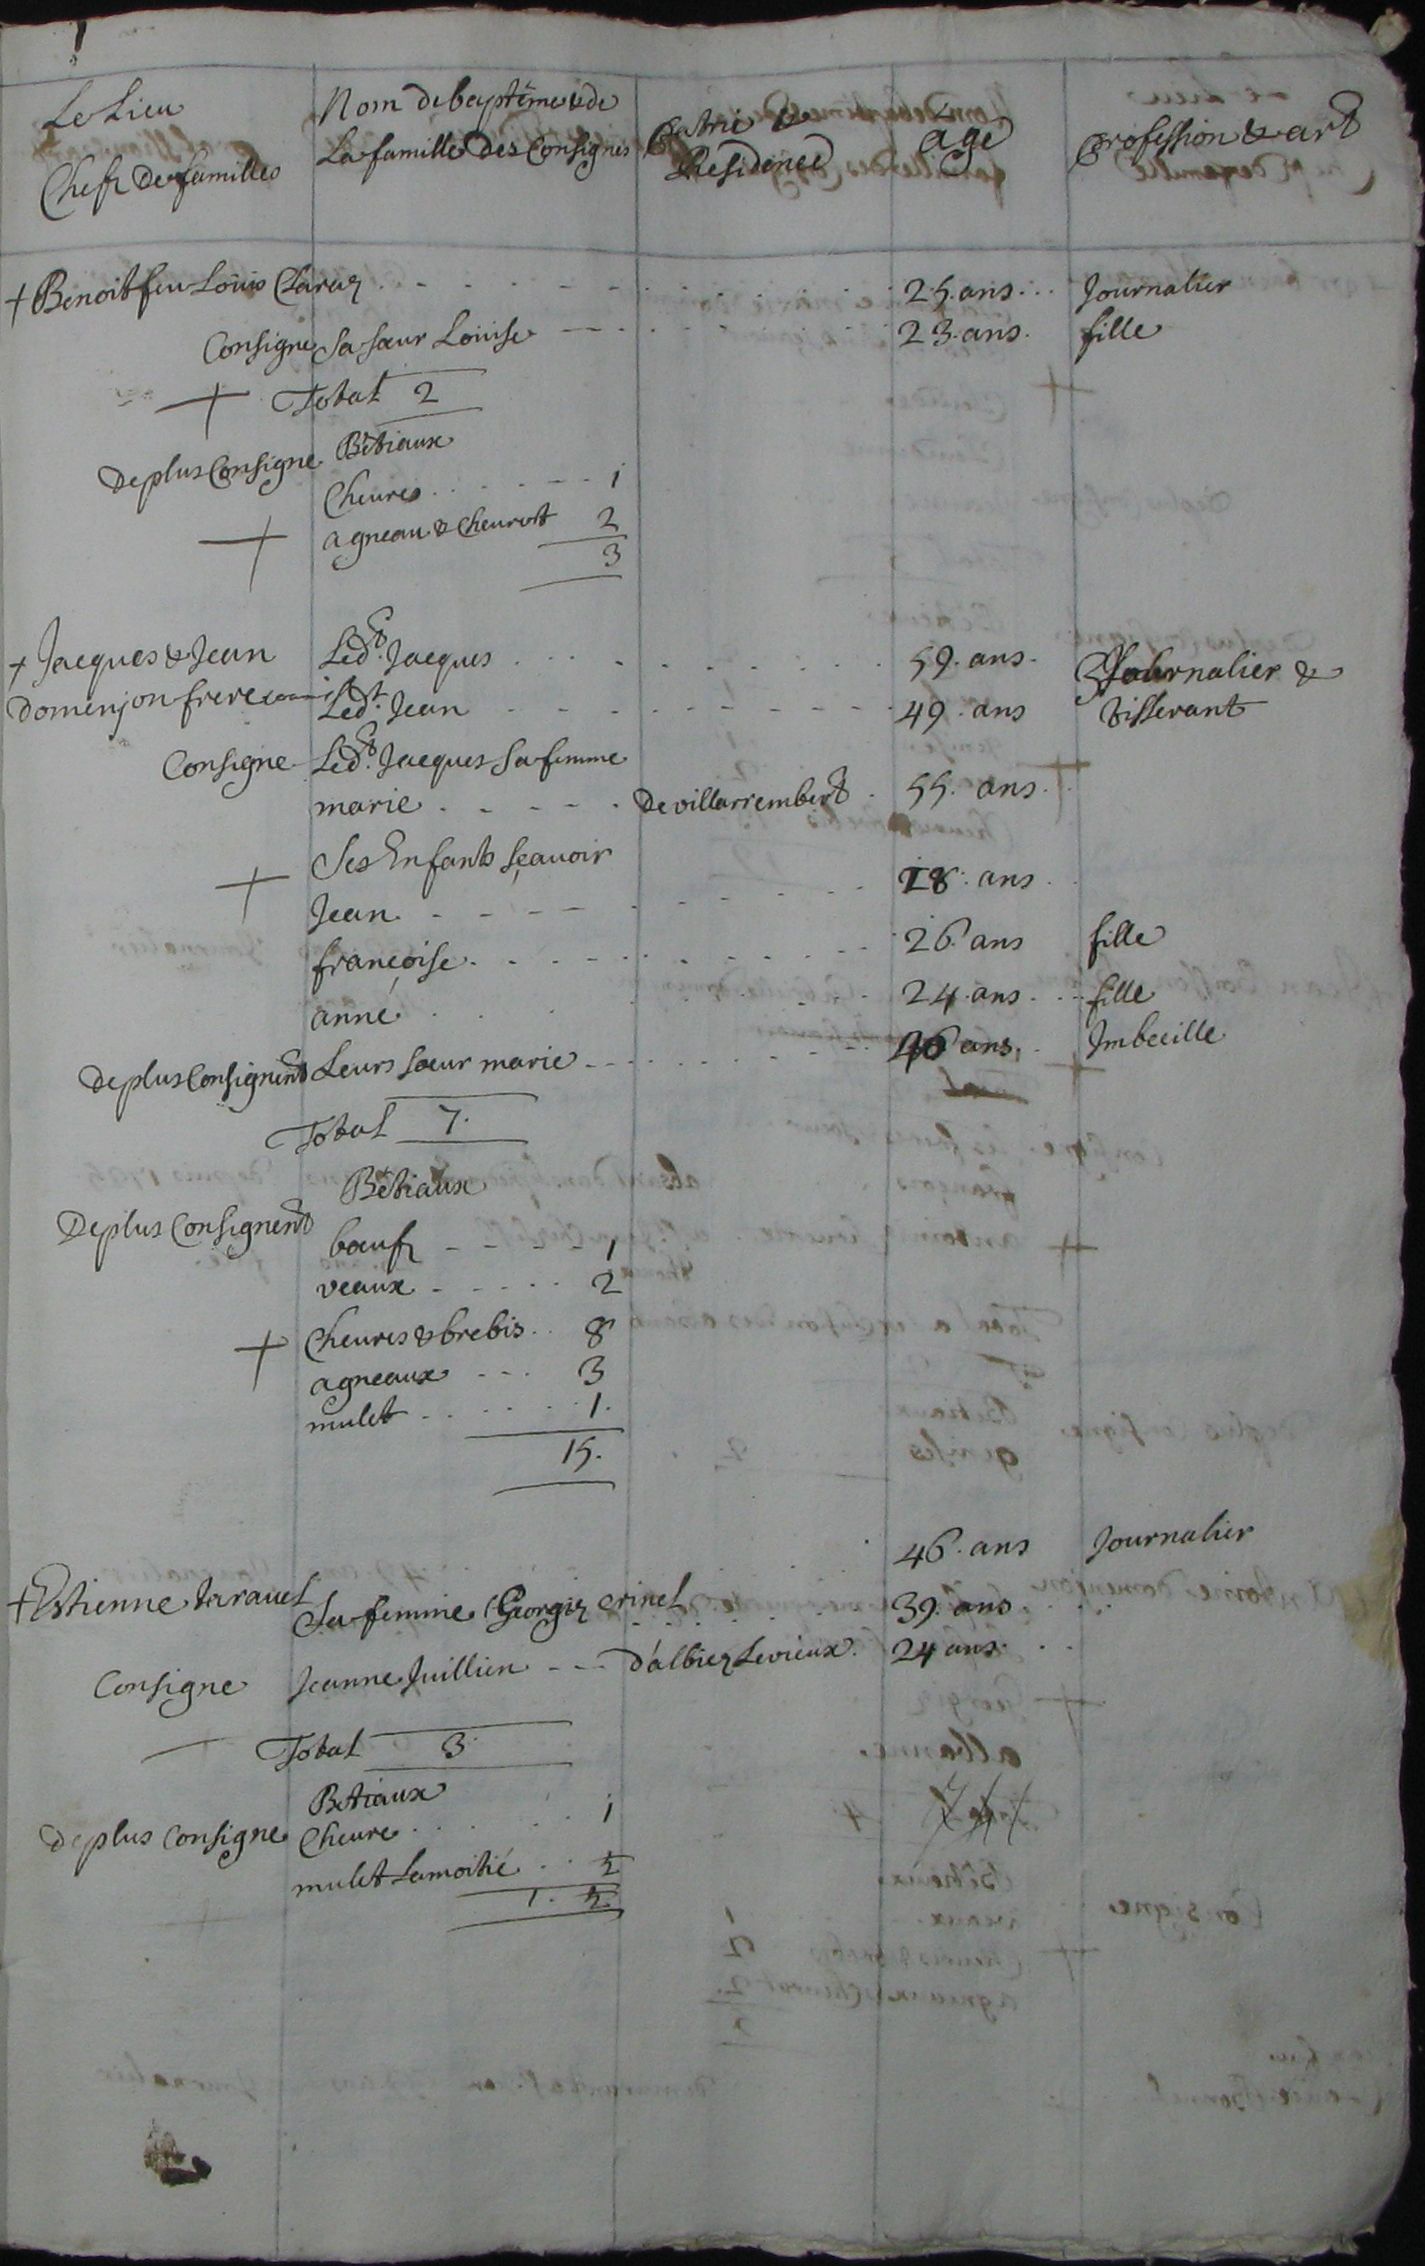 Le Lieu
Chefz de familles
Nom de baptême & de
La famille Des Consignes
Patrie &
Residence
age
profession & art
+ Benoit feu Loüis Claraz 25. ans Journalier
Consigne Sa sœur Loüise 23. ans. fille
Total 2
De plus Consigne Bêtiaux
Cheures 1
agneau & cheurot 2
3
+ Jacques & Jean Led.t Jacques 59. ans. Journalier &
Domenjon freres Led.t Jean 49. ans tisserant
Consigne Led.t Jacques Sa femme
marie De villarrembert 55. ans
Ses Enfants sçauoir
Jean 18. ans
françoise 26. ans fille
anné 24. ans fille
De plus Consignent Leurs sœur marie 46 ans. Imbecille
Total 7.
Bêtiaux
De plus Consignent
bœufz 1
veaux 2
Cheures & brebis 8
agneaux 3
mulet 1.
15.
+ Estienne taravel 46. ans Journalier
Sa femme Georgiz crinel 39. ans
Consigne Jeanne Juillien D'albiez Le vieux 24 ans
Total 3
Betiaux
De plus Consigne Cheure 1
mulet La moitié 1/2
1. 1/2